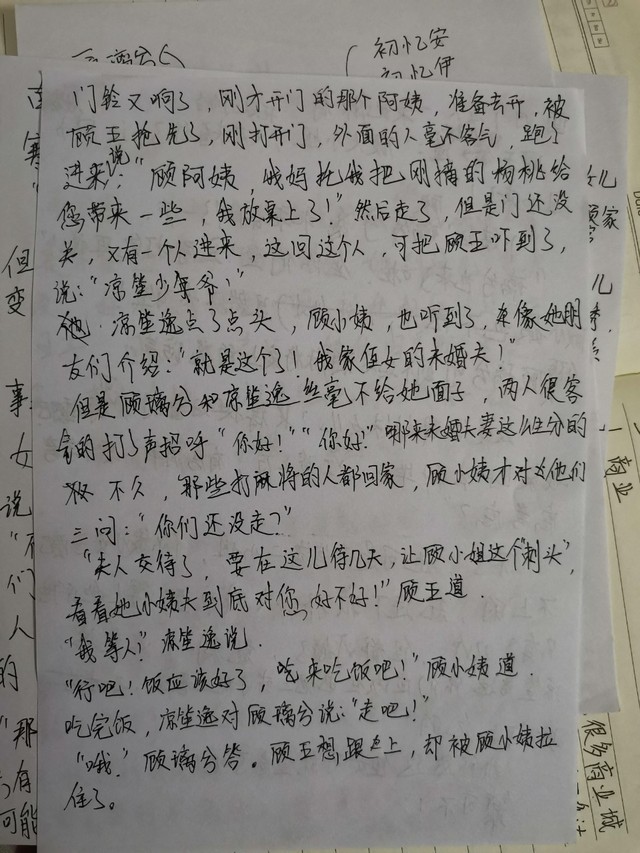 初忆安
初忆伊
门铃又响了，刚才开门的那个阿姨，准备去开，被
顾玉抢先了，刚打开门，外面的人毫不客气，跑了
进来说："顾阿姨，我妈托我把刚摘的杨桃给
您带来一些，我放桌上了！"然后走了，但是门还没
关，又有一个人进来，这回这个人，可把顾玉吓到了，
说："凉笙少爷！"
凉笙逸点了点头，顾小姨，也听到了，来像她朋
友们介绍："就是这个了！我家侄女的未婚夫！"
但是顾璃兮和凉笙逸丝毫不给她面子，两人很客
套的打了声招呼"你好！""你好！"哪来未婚夫妻这么生分的
不久，那些打麻将的人都回家，顾小姨才对他们
三问："你们还没走？"
"夫人交待了，要在这儿待几天，让顾小姐这个"刺头"，
看看她小姨夫到底对您好不好！"顾玉道.
"我等人！"凉笙逸说.
"行吧！饭应该好了，吃来吃饭吧！"顾小姨道.
吃完饭，凉笙逸对顾璃兮说："走吧！"
"哦."顾璃兮答。顾玉想跟上，却被顾小姨拉
住了。
但
变
事
女
说
们
人
的
"那
有
可能
儿
顾家
儿
季
商业
很多商业城